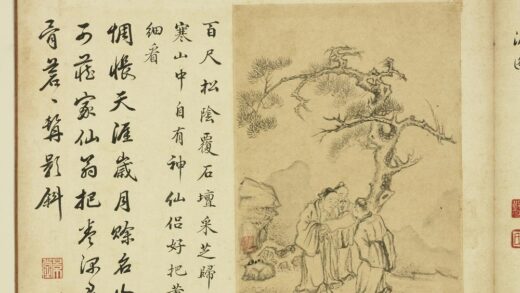 百尺松陰覆石壇采芝歸
寒山中自有神仙侶好把黃
細看
惆悵天涯歲月賒名
家仙翁把卷
蒼〻鬢影斜